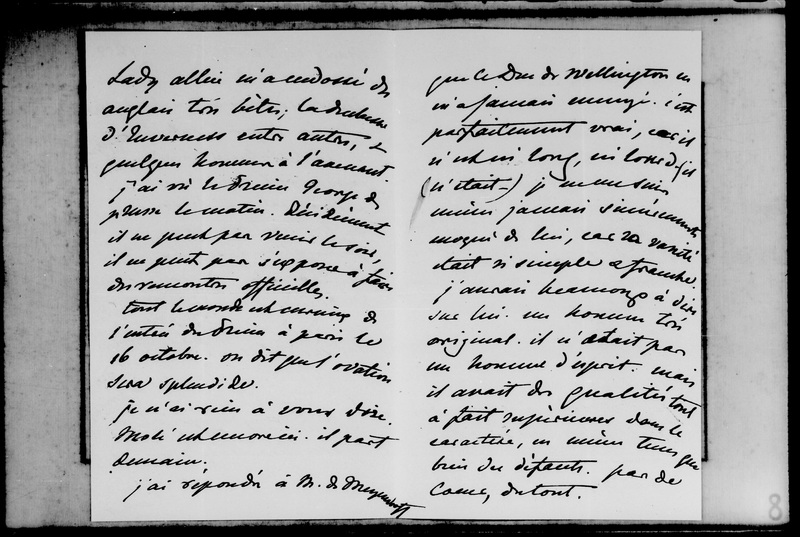 Lady Allice m'a endossé des
anglais très bêtes; la duchesse
d'Inverness entre autres, &
quelques hommes à l'avenant.
j'ai vu le Prince George de
Prusse le matin. Décidément
il ne peut pas venir le soir,
il ne peut pas s'exposer à faire
des rencontres officielles.
tout le monde est occupé de
l'entrée du Prince à Paris le
16 octobre. on dit que l'ovation
sera splendide.
je n'ai rien à vous dire.
Molé est encore ici. il part
demain.
j'ai répondu à M. de Meyendorff
que le Duc de Wellington ne
m'a jamais ennuyé. c'est
parfaitement vrai, car il
n'est ni long, ni lourd - (il
(n'était -) je ne me suis
même jamais sincèrement
moqué de lui, car sa vanité
était si simple & franche.
j'aurais beaucoup à dire
sur lui. un homme très
original. il n'était pas
un homme d'esprit. mais
il avait des qualités tout
à fait supérieures dans le
caractère, en même temps que
bien des défauts. pas de
coeur, du tout.
8